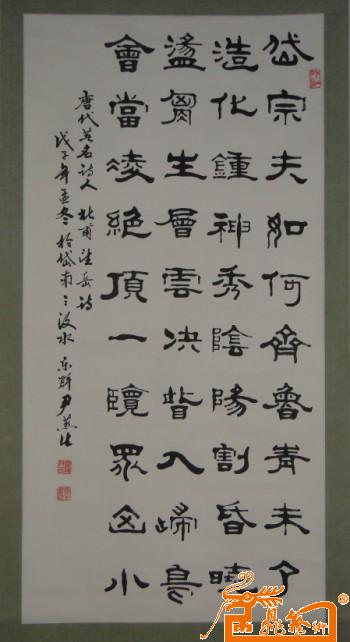 岱宗夫如何齊魯青未了
造化鍾神秀陰陽割昏曉
盪胷生層雲决眥入歸鳥
會當凌絕頂一覽眾山小
唐代英名詩人杜甫望岳詩
戊子年孟冬於岱南之汶水東畔尹